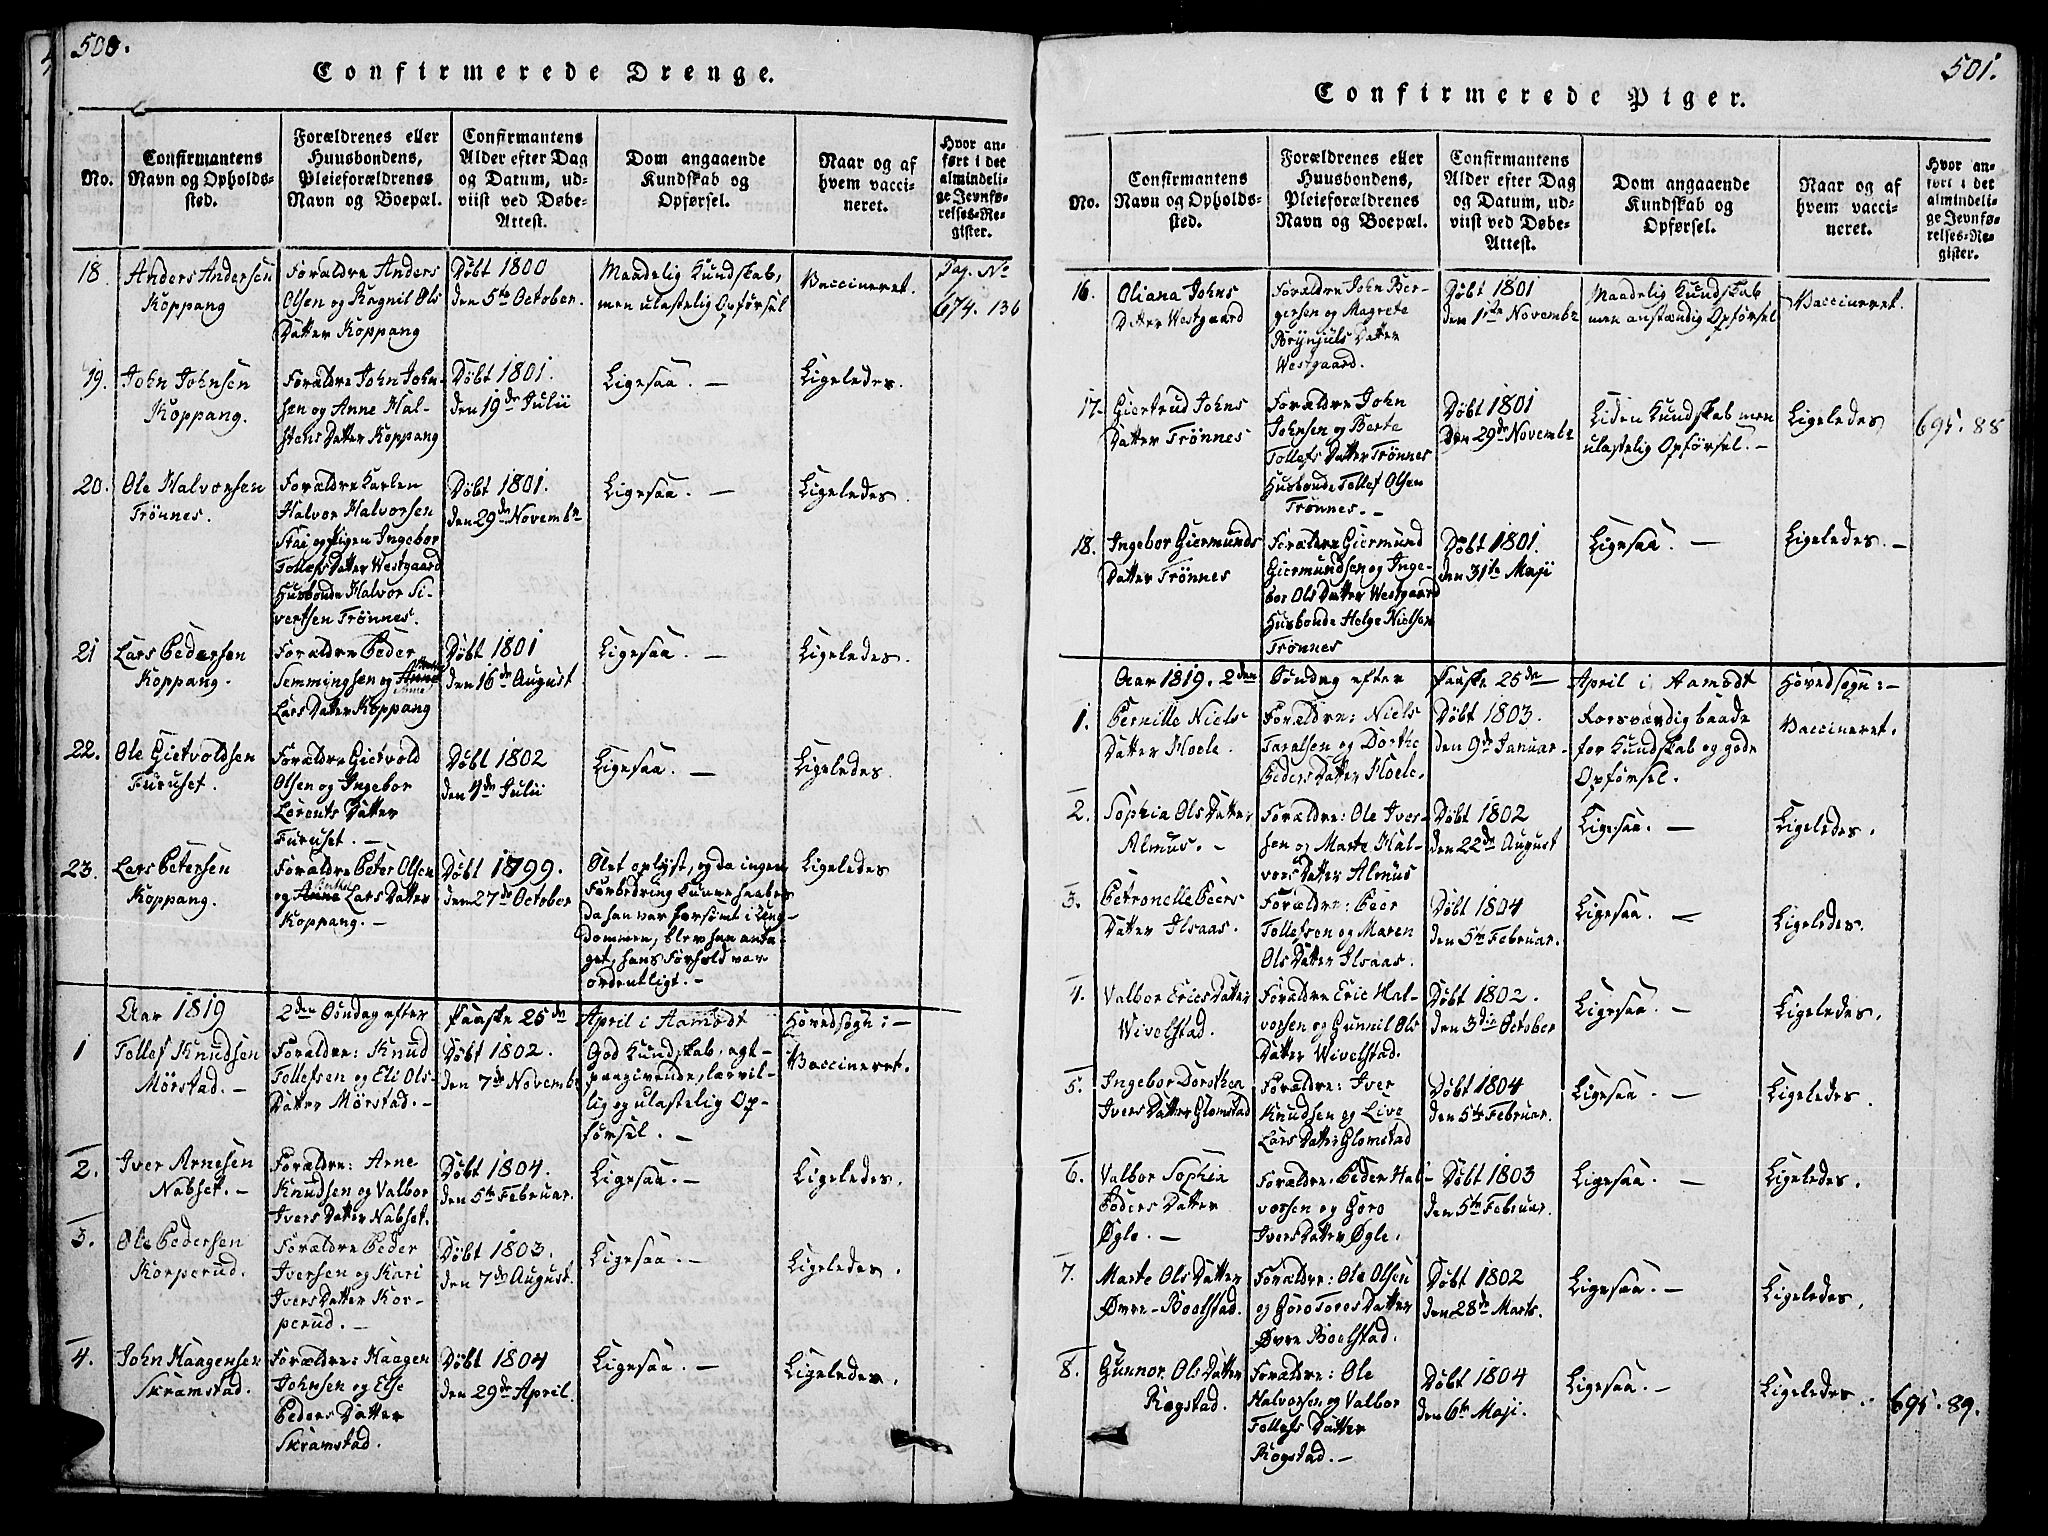 500.
Confirmerede Drenge.
No.
Confirmantens
Navn og Opholds-
sted.
Forældrenes eller
Huusbondens,
Pleieforældrenes
Navn og Boepæl.
Confirmantens
Alder efter Dag
og Datum, ud-
viist ved Døbe-
Attest.
Dom angaaende
Kundskab og
Opførsel.
Naar og af
hvem vacci-
neret.
Hvor an-
ført i det
almindeli-
ge Jevnfø-
relses-Re-
gister.
18.
Anders Andersen
Koppang
Forældre Anders
Olsen og Ragnil Ols
Datter Koppang
Døbt 1800
den 5te October.
Maadelig Kundskab,
men ulastelig Opførsel
Vaccineret.
Pag. No
674. 136
19.
John Johnsen
Koppang.
Forældre John John-
sen og Anne Hal-
stens Datter Koppang
Døbt 1801.
den 19de Julii
Ligesaa. —
Ligeledes.
20.
Ole Halvorsen
Trönnes.
Forældre Karlen
Halvor Halvorsen
Stai og Pigen Ingebor
Tollefs Datter Westgaard
Husbonde Halvor Si-
vertsen Trönnes.
Døbt 1801.
den 29de Novembr
Ligesaa. —
Ligeledes.
21
Lars Pedersen
Koppang.
Forældre Peder
Semmingsen og Anne
Anne
Lars Datter Koppang
Døbt 1801
den 16de August
Ligesaa. —
Ligeledes.
22.
Ole Gietvoldsen
Furuset.
Forældre Gietvold
Olsen og Ingebor
Lorents Datter
Furuset. —
Døbt 1802
den 4de Julii
Ligesaa. —
Ligeledes.
23.
Lars Petersen
Koppang.
Forældre Peter Olsen
og Anne Lars Datter
Koppang. —
Døbt 1799.
den 27de October
Slet oplyst, og da ingen
Forbedring kunne haabes
da han var forsömt i Ung-
dommen, blev han anta-
get, hans Forhold var
ordentligt. —
Ligeledes
Aar 1819
2den Söndag efter
Paaske 25de
April i Aamodt
Hovedsogn: —
1
Tollef Knudsen
Mörstad. —
Forældre: Knud
Tollefsen og Eli Ols-
Datter Mörstad. —
Døbt 1802.
den 7de Novembr
God Kundskab, agt-
paagivende, lærvil-
lig og ulastelig Op-
førsel. —
Vaccineret.
2.
Iver Arnesen
Nabset. —
Forældre: Arne
Knudsen og Valbor
Ivers Datter Nabset.
Døbt 1804.
den 5te Februar.
Ligesaa. —
Ligeledes.
3.
Ole Pedersen
Korperud.
Forældre Peder
Iversen og Kari
Ivers Datter Kor-
perud. —
Døbt 1803.
den 7de August.
Ligesaa. —
Ligeledes.
4.
John Haagensen
Skramstad.
Forældre: Haagen
Johnsen og Else
Peders Datter
Skramstad.
Døbt 1804
den 29de April.
Ligesaa. —
Ligeledes.
501.
Confirmerede Piger.
No.
Confirmantens
Navn og Opholds-
sted.
Forældrenes eller
Huusbondens,
Pleieforældrenes
Navn og Boepæl.
Confirmantens
Alder efter Dag
og Datum, ud-
viist ved Døbe-
Attest.
Dom angaaende
Kundskab og
Opførsel.
Naar og af
hvem vacci-
neret.
Hvor an-
ført i det
almindeli-
ge Jevnfø-
relses-Re-
gister.
16.
Oliana Johns
Datter Westgaard
Forældre John Ber-
gersen og Magrete
Brynjuls Datter
Westgaard.
Døbt 1801
den 1ste Novembr
Maadelig Kundskab
men anstændig Opførsel
Vaccineret.
17.
Giertrud Johns
Datter Trönnes
Forældre John
Johnsen og Berte
Tollefs Datter Trönnes
Husbonde Tollef Olsen
Trönnes. —
Døbt 1801
den 29de Novembr
Liden Kundskab men
ulastelig Opførsel. —
Ligeledes
695. 88
18.
Ingebor Giermunds
Datter Trönnes
Forældre Giermund
Giermundsen og Inge-
bor Ols Datter Westgaard
Husbonde Helge Nielsen
Trönnes
Døbt 1801.
den 31te Maji
Ligesaa. —
Ligeledes. —
Aar 1819. 2den
Söndag efter
Paaske 25de
April i Aamodt
Hovedsogn: —
1.
Pernille Niels
Datter Hoele.
Forældre: Niels
Taralsen og Dorthe
Peders Datter Hoele.
Døbt 1803.
den 9de Januar.
Rosværdig baade
for Kundskab og gode
Opførsel.
Vaccineret.
2.
Sophia Ols Datter
Almus. —
Forældre: Ole Iver-
sen og Marte Hal-
vors Datter Almus
Døbt 1802
den 22de August
Ligesaa. —
Ligeledes.
3.
Petronelle Peers
Datter Ilsaas.
Forældre: Peer
Tollefsen og Maren
Ols Datter Ilsaas.
Døbt 1804
den 5te Februar.
Ligesaa. —
Ligeledes.
4.
Valbor Erics Datter
Wivelstad.
Forældre Eric Hal-
vorsen og Gunnil Ols
Datter Wivelstad.
Døbt 1802.
den 3die October
Ligesaa. —
Ligeledes.
5.
Ingebor Dorthea
Ivers Datter Glomstad
Forældre: Iver
Knudsen og Live
Lars Datter Glomstad
Døbt 1804
den 5te Februar.
Ligesaa. —
Ligeledes.
6.
Valbor Sophia
Peders Datter
Øgle. —
Forældre: Peder Hal-
vorsen og Goro
Ivers Datter Øgle.
Døbt 1803
den 5te Februar.
Ligesaa. —
Ligeledes.
7.
Marte Ols Datter
Øvre-Boelstad.
Forældre: Ole Olsen
og Goro Tores Datter
Øvre Boelstad.
Døbt 1802
den 28de Marts.
Ligesaa. —
Ligeledes.
8.
Gunnor Ols Datter
Rogstad.
Forældre: Ole
Halvorsen og Valbor
Tollefs Datter
Rogstad. —
Døbt 1804
den 6te Maji.
Ligesaa. —
Ligeledes.
695. 89.